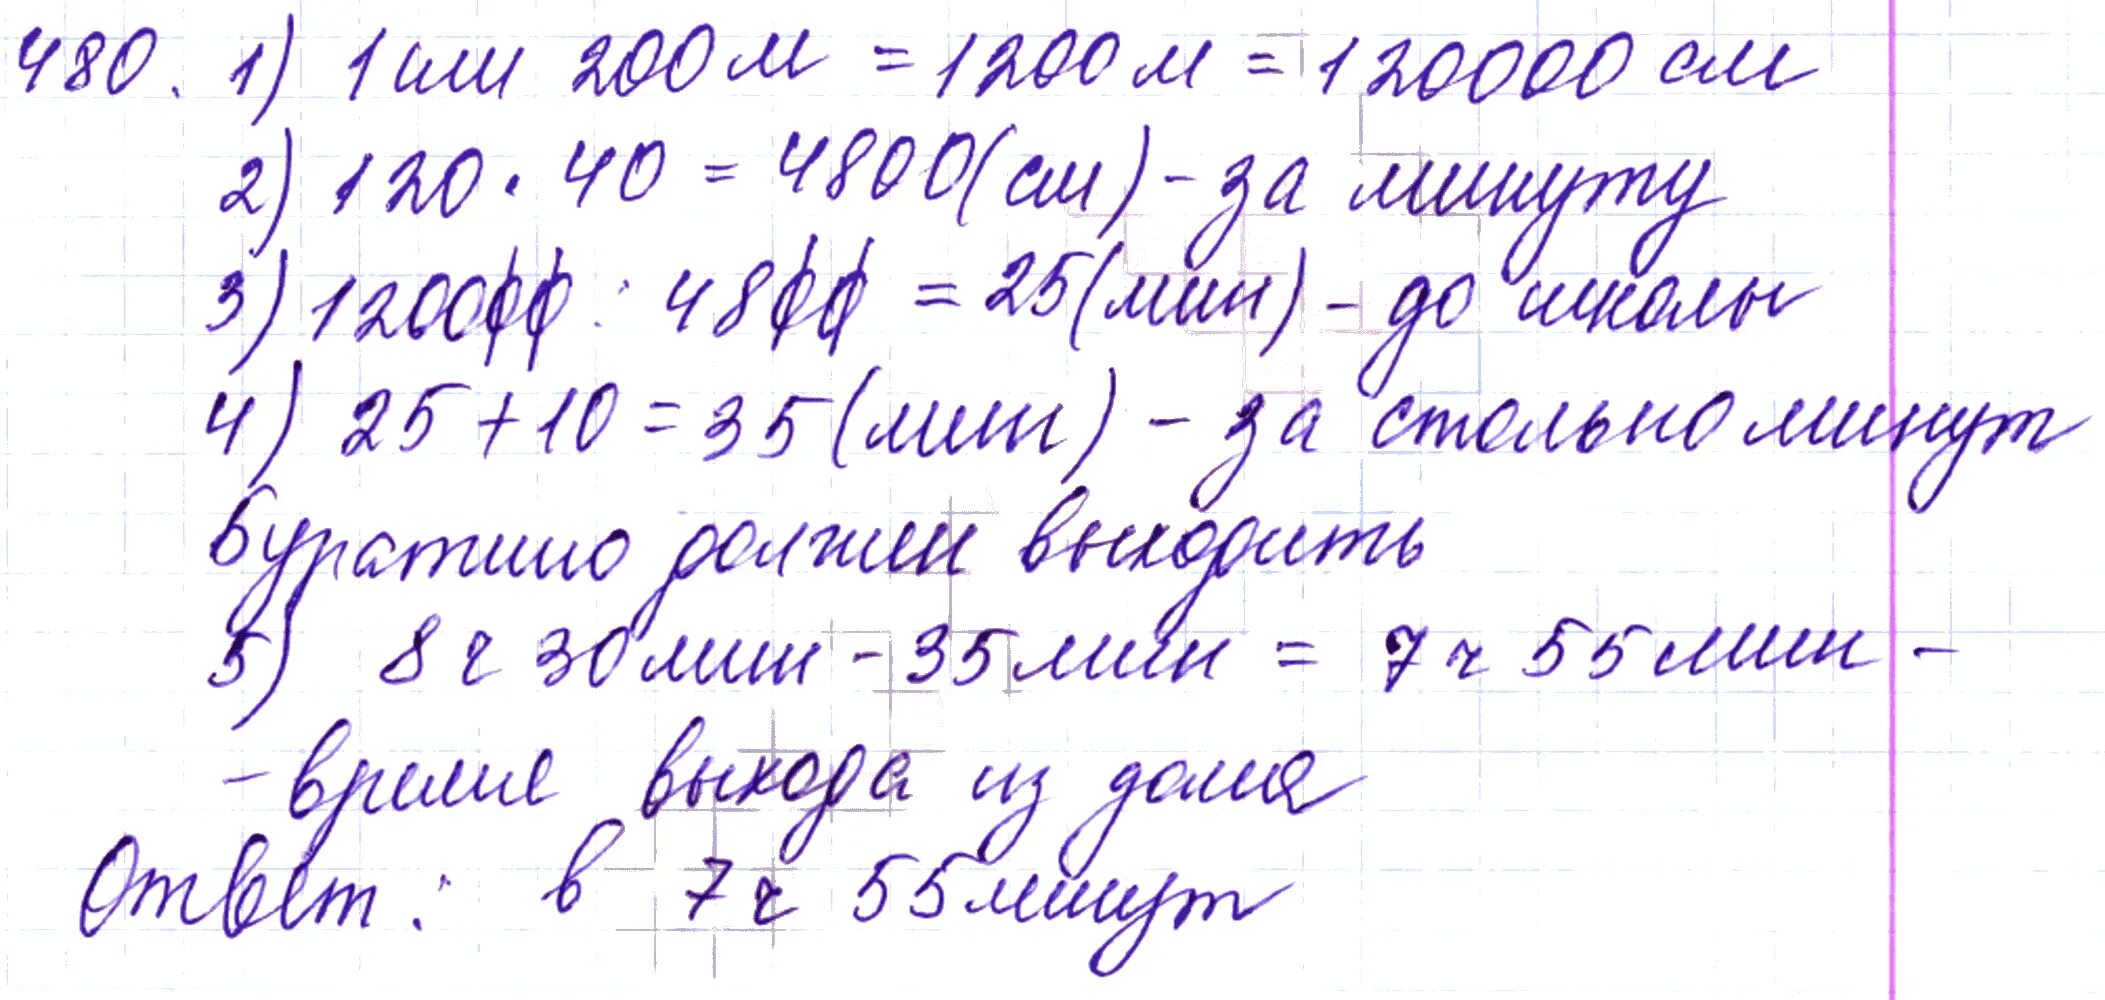 480. 1) 1 км 200 м = 1200 м = 120000 см
2) 120 · 40 = 4800 (см) - за минуту
3) 120000 : 4800 = 25 (мин) - до школы
4) 25 + 10 = 35 (мин) - за столько минут
Буратино должен выходить
5) 8 ч 30 мин - 35 мин = 7 ч 55 мин -
- время выхода из дома
Ответ: в 7 ч 55 минут